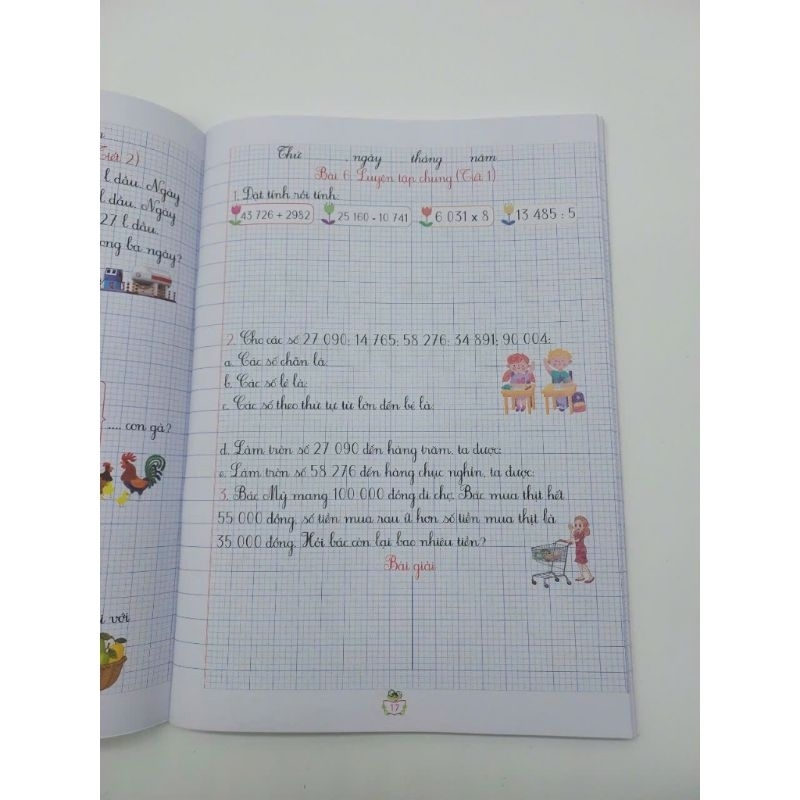 Tiết 2)
l dầu. Ngày
l dầu. Ngày
27 l dầu.
ong ba ngày?
.... con gà?
i với
Thứ ngày tháng năm
Bài 6: Luyện tập chung (Tiết 1)
1. Đặt tính rồi tính:
43 726 + 2982 25 160 - 10 741 6 031 x 8 13 485 : 5
2. Cho các số 27 090; 14 765; 58 276; 34 891; 90 004:
a. Các số chẵn là:
b. Các số lẻ là:
c. Các số theo thứ tự từ lớn đến bé là:
d. Làm tròn số 27 090 đến hàng trăm, ta được:
e. Làm tròn số 58 276 đến hàng chục nghìn, ta được:
3. Bác Mỹ mang 100 000 đồng đi chợ. Bác mua thịt hết
55 000 đồng, số tiền mua rau ít hơn số tiền mua thịt là
35 000 đồng. Hỏi bác còn lại bao nhiêu tiền?
Bài giải
17